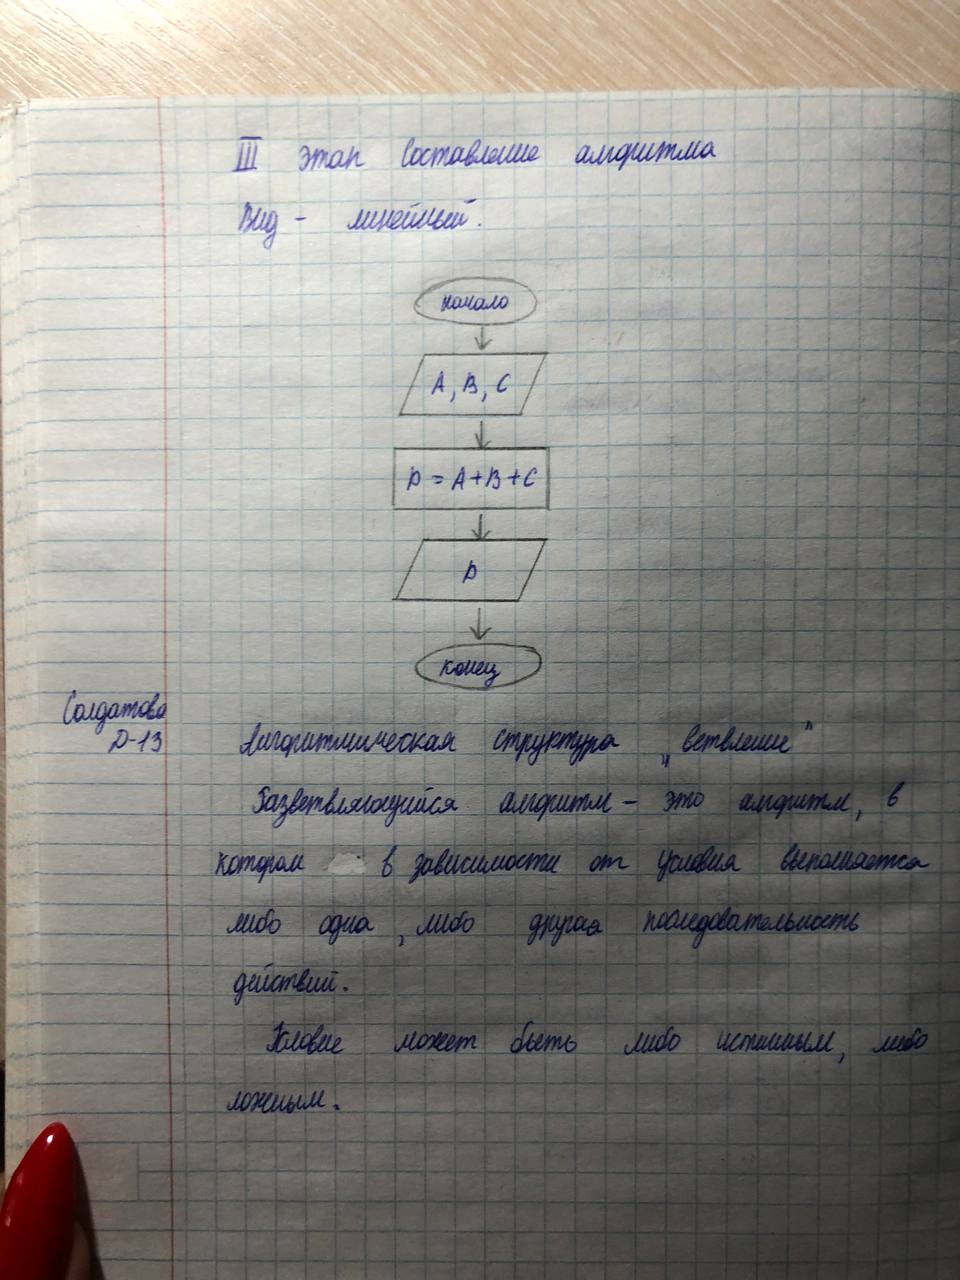 III этап Составление алгоритма
Вид - линейный.
начало
A, B, C
D = A+B+C
D
конец
Солдатова
Д-13
Алгоритмическая структура „ветвление"
Разветвляющийся алгоритм – это алгоритм, в
котором в зависимости от условия выполняется
либо одна, либо другая последовательность
действий.
Условие может быть либо истинным, либо
ложным.